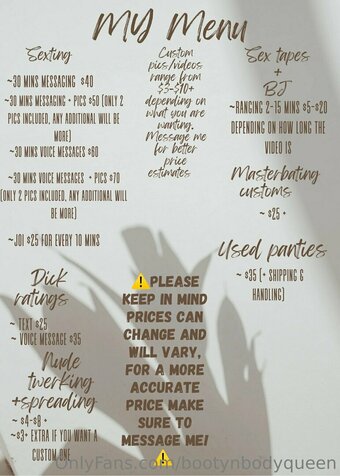 MY Menu
Sexting
~30 MINS MESSAGING $40
~30 MINS MESSAGING + PICS $50 (ONLY 2
PICS INCLUDED, ANY ADDITIONAL WILL BE
MORE)
~30 MINS VOICE MESSAGES $60
~30 MINS VOICE MESSAGES + PICS $70
(ONLY 2 PICS INCLUDED, ANY ADDITIONAL WILL
BE MORE)
~JOI $25 FOR EVERY 10 MINS
Dick
ratings
~ TEXT $25
~ VOICE MESSAGE $35
Nude
twerking
+spreading
~ $4-$8 +
~$3+ EXTRA IF YOU WANT A
CUSTOM ONE
Custom
pics/videos
range from
$3-$70+
depending on
what you are
wanting.
Message me
for better
price
estimates
⚠️PLEASE
KEEP IN MIND
PRICES CAN
CHANGE AND
WILL VARY,
FOR A MORE
ACCURATE
PRICE MAKE
SURE TO
MESSAGE ME!
⚠️
Sex tapes
+
BJ
~RANGING 2-15 MINS $5-$20
DEPENDING ON HOW LONG THE
VIDEO IS
Masterbating
customs
~ $25 +
Used panties
~ $35 (+ SHIPPING &
HANDLING)
OnlyFans.com/bootynbodyqueen